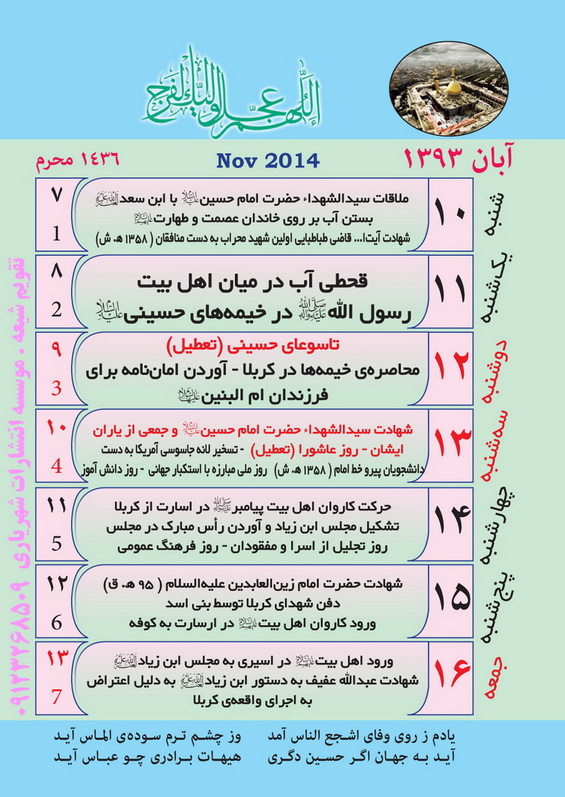 اللّهم عجل لولیک الفرج
آبان ۱۳۹۳
Nov 2014
۱۴۳۶ محرم
شنبه
۱۰
ملاقات سیدالشهداء حضرت امام حسین علیه‌السلام با ابن سعد
بستن آب بر روی خاندان عصمت و طهارت
شهادت آیت‌ا... قاضی طباطبایی اولین شهید محراب به دست منافقان ( ۱۳۵۸ هـ. ش)
۷
1
یک شنبه
۱۱
قحطی آب در میان اهل بیت
رسول الله ﷺ در خیمه‌های حسینی
۸
2
دوشنبه
۱۲
تاسوعای حسینی (تعطیل)
محاصره‌ی خیمه‌ها در کربلا - آوردن امان‌نامه برای
فرزندان ام البنین
۹
3
سه شنبه
۱۳
شهادت سیدالشهداء حضرت امام حسین علیه‌السلام و جمعی از یاران
ایشان - روز عاشورا (تعطیل) - تسخیر لانه جاسوسی آمریکا به دست
دانشجویان پیرو خط امام ( ۱۳۵۸ هـ. ش) روز ملی مبارزه با استکبار جهانی - روز دانش آموز
۱۰
4
چهارشنبه
۱۴
حرکت کاروان اهل بیت پیامبر ﷺ در اسارت از کربلا
تشکیل مجلس ابن زیاد و آوردن رأس مبارک در مجلس
روز تجلیل از اسرا و مفقودان - روز فرهنگ عمومی
۱۱
5
پنج شنبه
۱۵
شهادت حضرت امام زین‌العابدین علیه‌السلام ( ۹۵ هـ. ق)
دفن شهدای کربلا توسط بنی اسد
ورود کاروان اهل بیت در ارسارت به کوفه
۱۲
6
جمعه
۱۶
ورود اهل بیت در اسیری به مجلس ابن زیاد
شهادت عبدالله عفیف به دستور ابن زیاد به دلیل اعتراض
به اجرای واقعه‌ی کربلا
۱۳
7
تقویم شیعه . موسسه انتشارات شهریاری ۰۹۱۲۳۲۶۸۵۰۹
یادم ز روی وفای اشجع الناس آمد وز چشم ترم سوده‌ی الماس آید
آید به جهان اگر حسین دگری هیهات برادری چو عباس آید